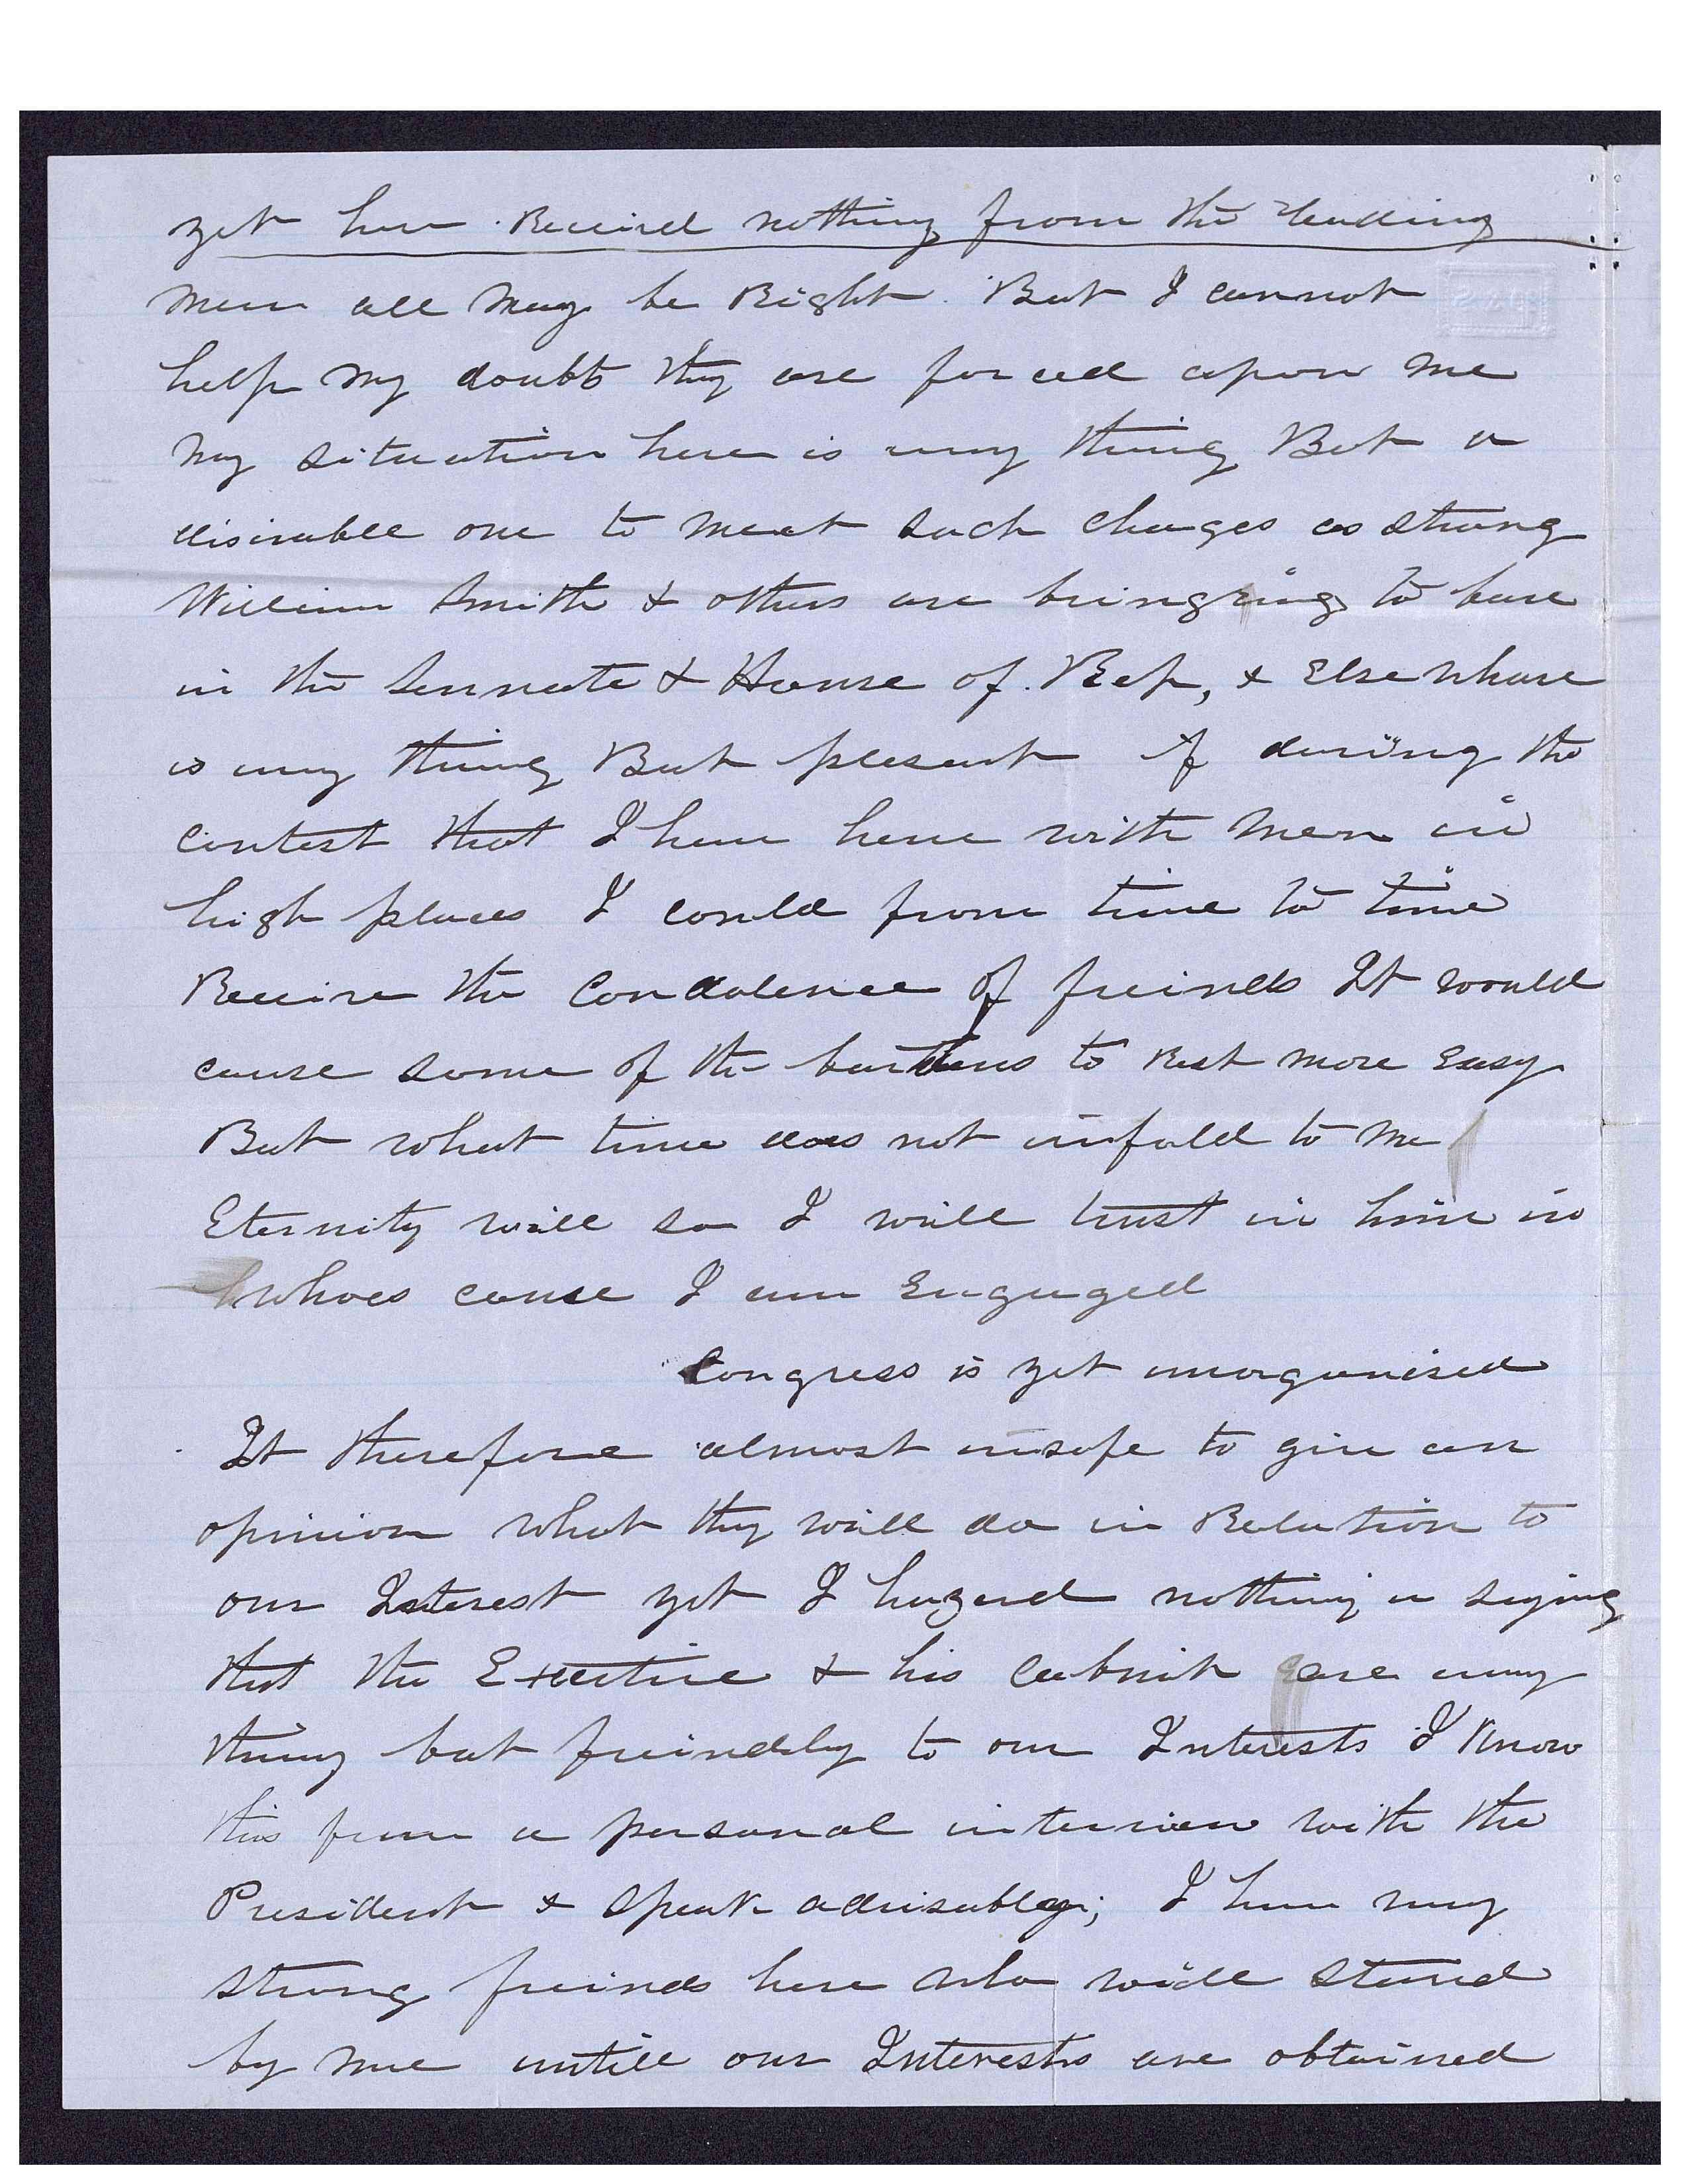 yet have Received nothing from the leading
men all may be Right. But I cannot
help my doubts they are forced apon me
my situation here is any thing But a
disirable one to meet such charges as strang
William Smith & others are bringing to bare
in the Sennate & House of Rep, & Elsewhare
is any thing But plesant if during the
contest that I have here with men in
high places I could from time to time
Receive the Condolence of freinds It would
cause some of the burthens to Rest more Easy
But what time does not unfold to me
Eternity will so I will trust in him in
whoes cause I am Engaged
Congress is yet unorganised
It therefore almost unsafe to give an
opinion what they will do in Relation to
our Interest yet I hazerd nothing in saying
that the Exective & his Cabnit are any
thing but freindly to our Interests I Know
this from a personal interview with the
President & Speak advisably; I have many
strong freinds here who will stand
by me untill our Interests are obtained